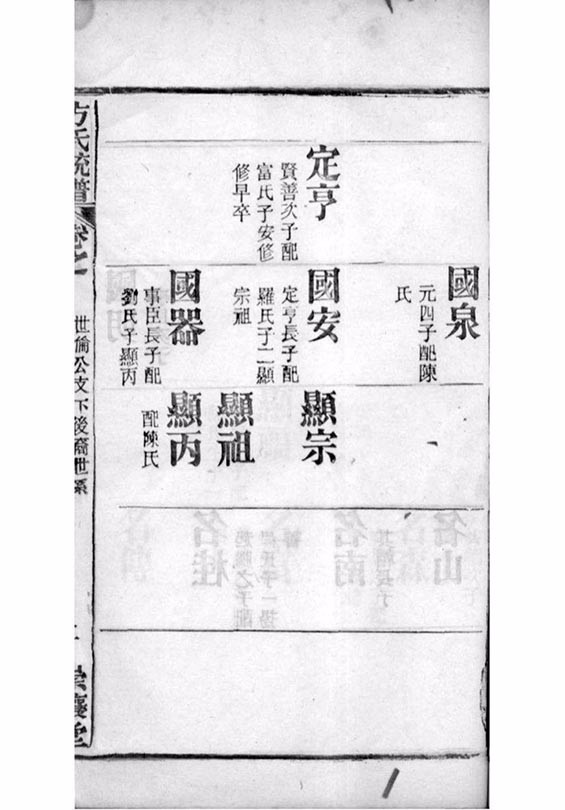 定亨
賢善次子配
富氏子安修
修早卒
國泉
元四子配陳
氏
國安
定亨長子配
羅氏子二顯
宗祖
國器
事臣長子配
劉氏子顯丙
顯宗
顯祖
顯丙
配陳氏
方氏統譜
卷之
世倫公支下後裔世系